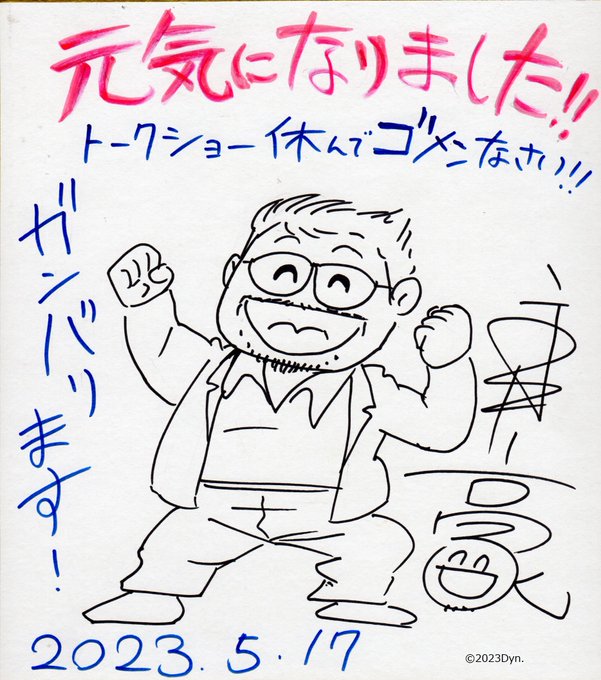 元気になりました!!
トークショー休んでゴメンなさい!!
ガンバります!
2023.5.17
©2023Dyn.